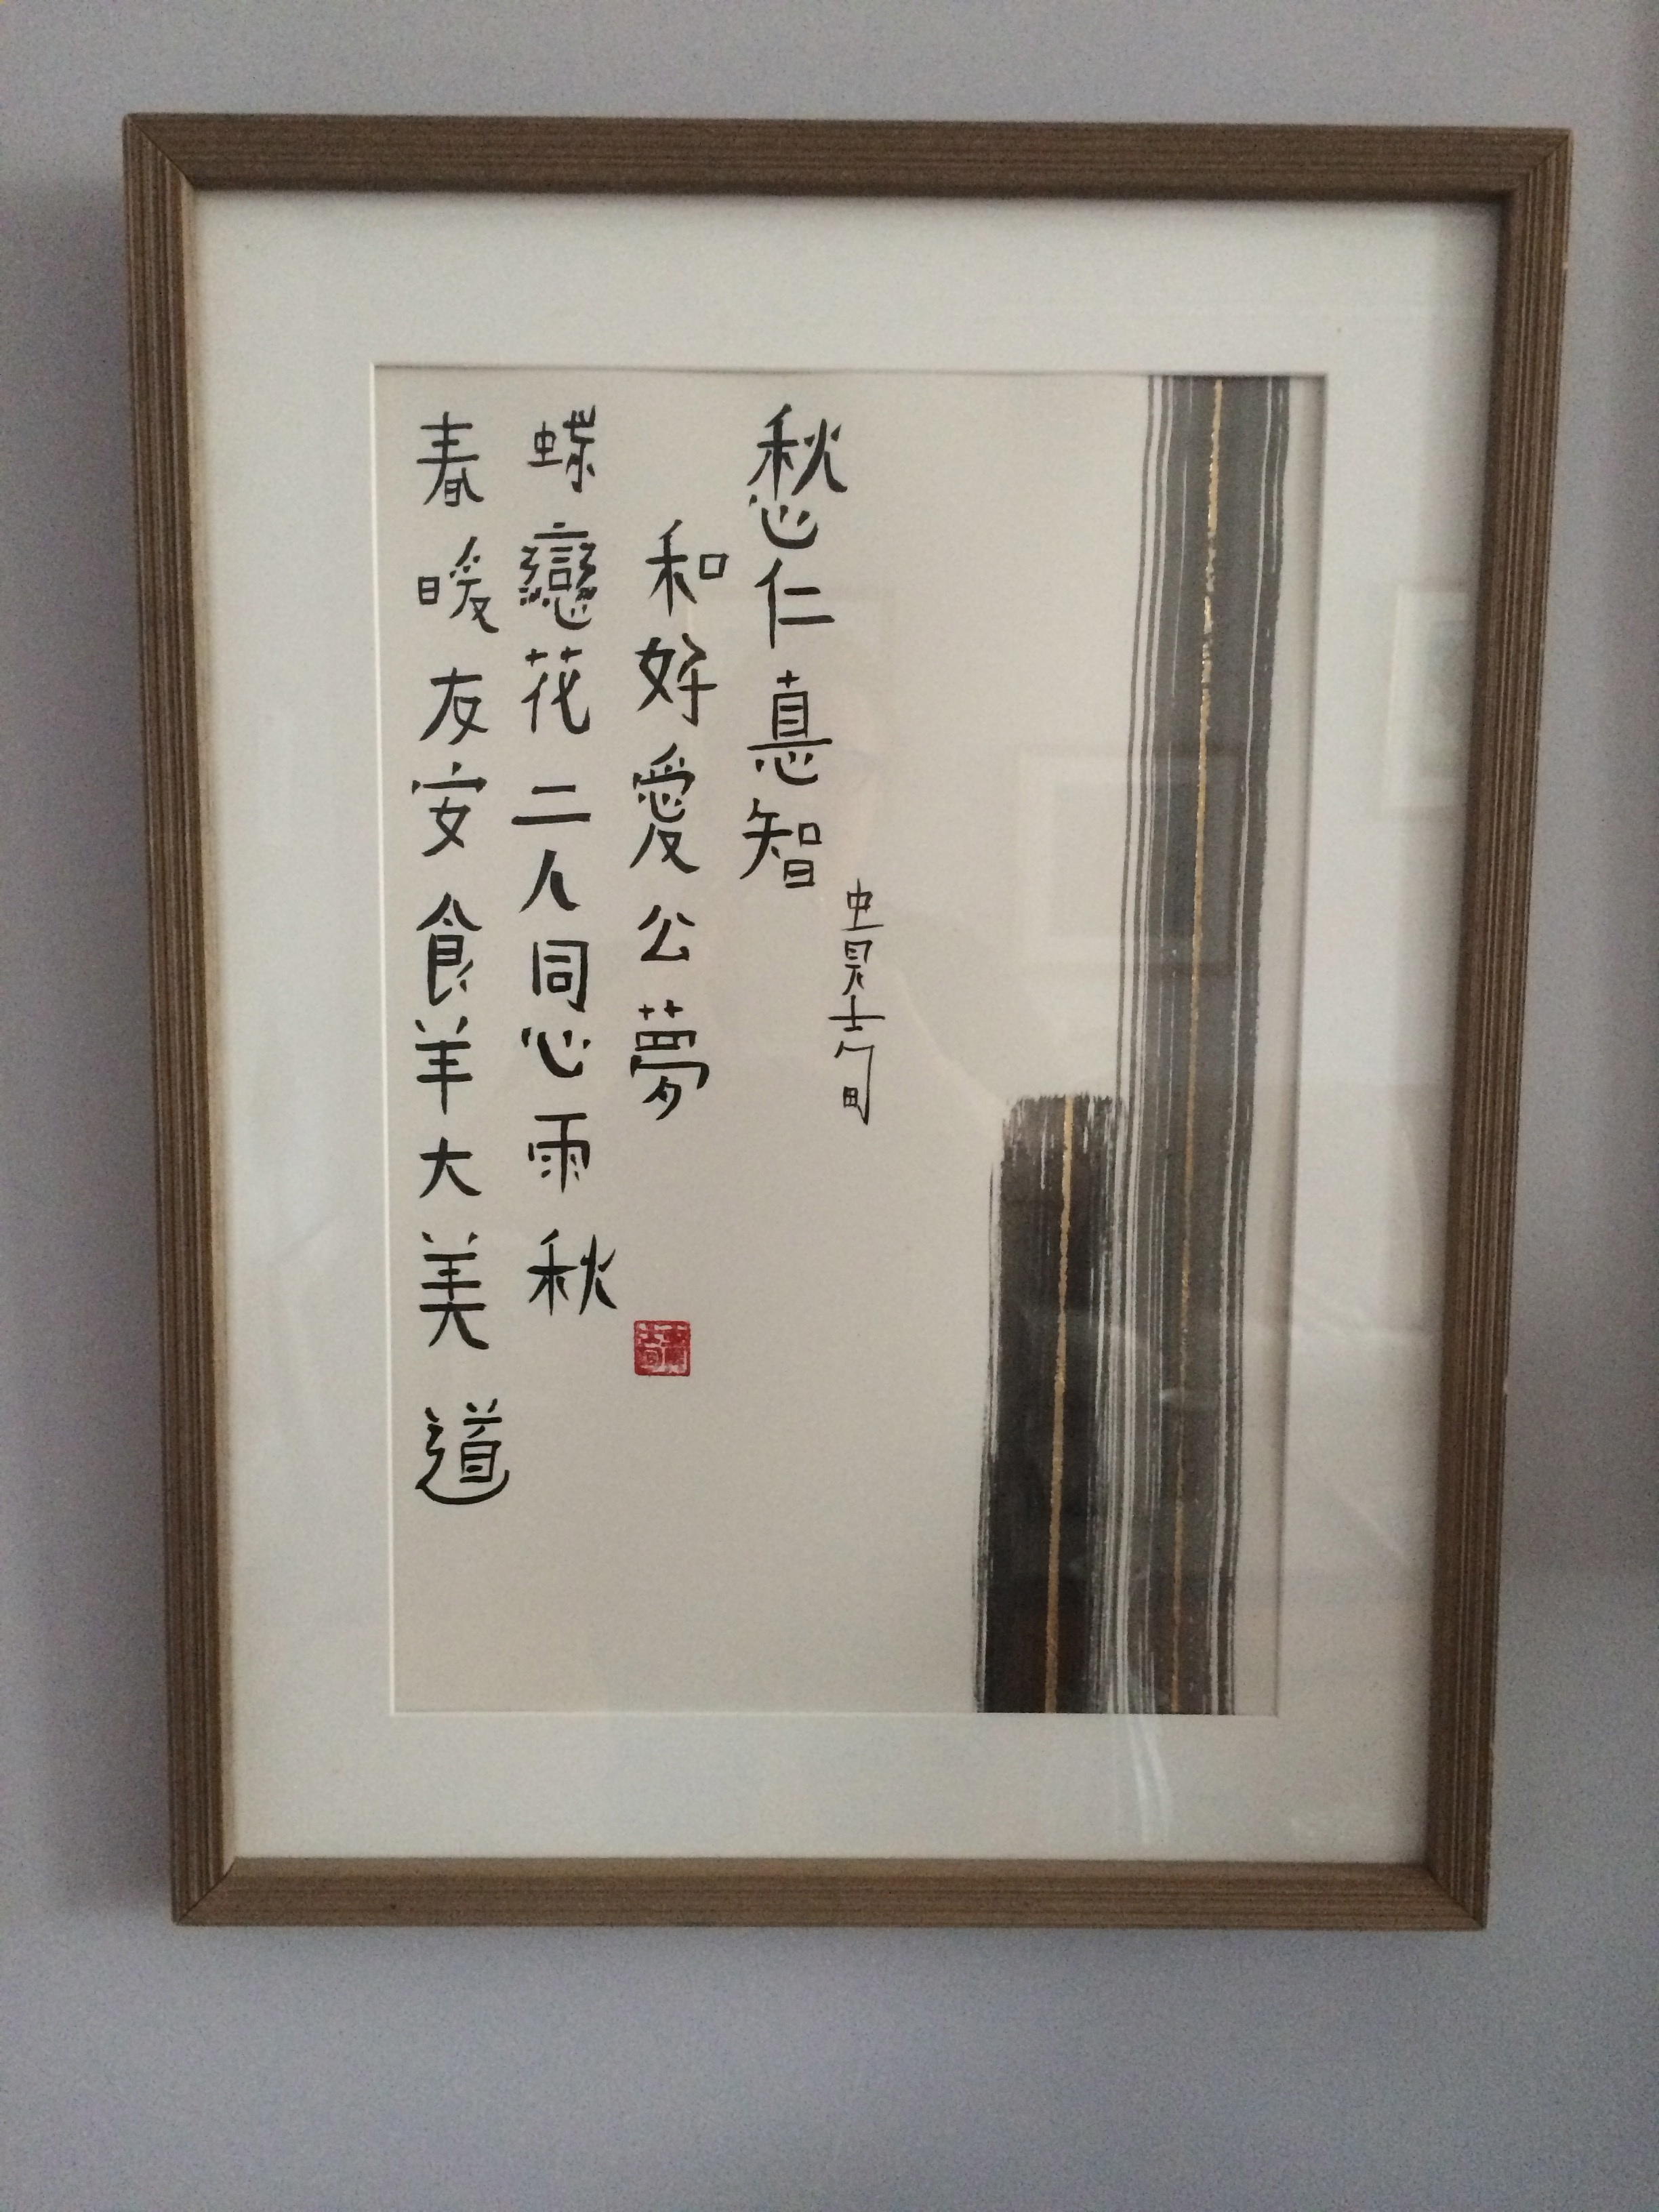 春暖友安食羊大美道
蝶戀花二人同心雨秋
和好愛公夢
愁仁悳智